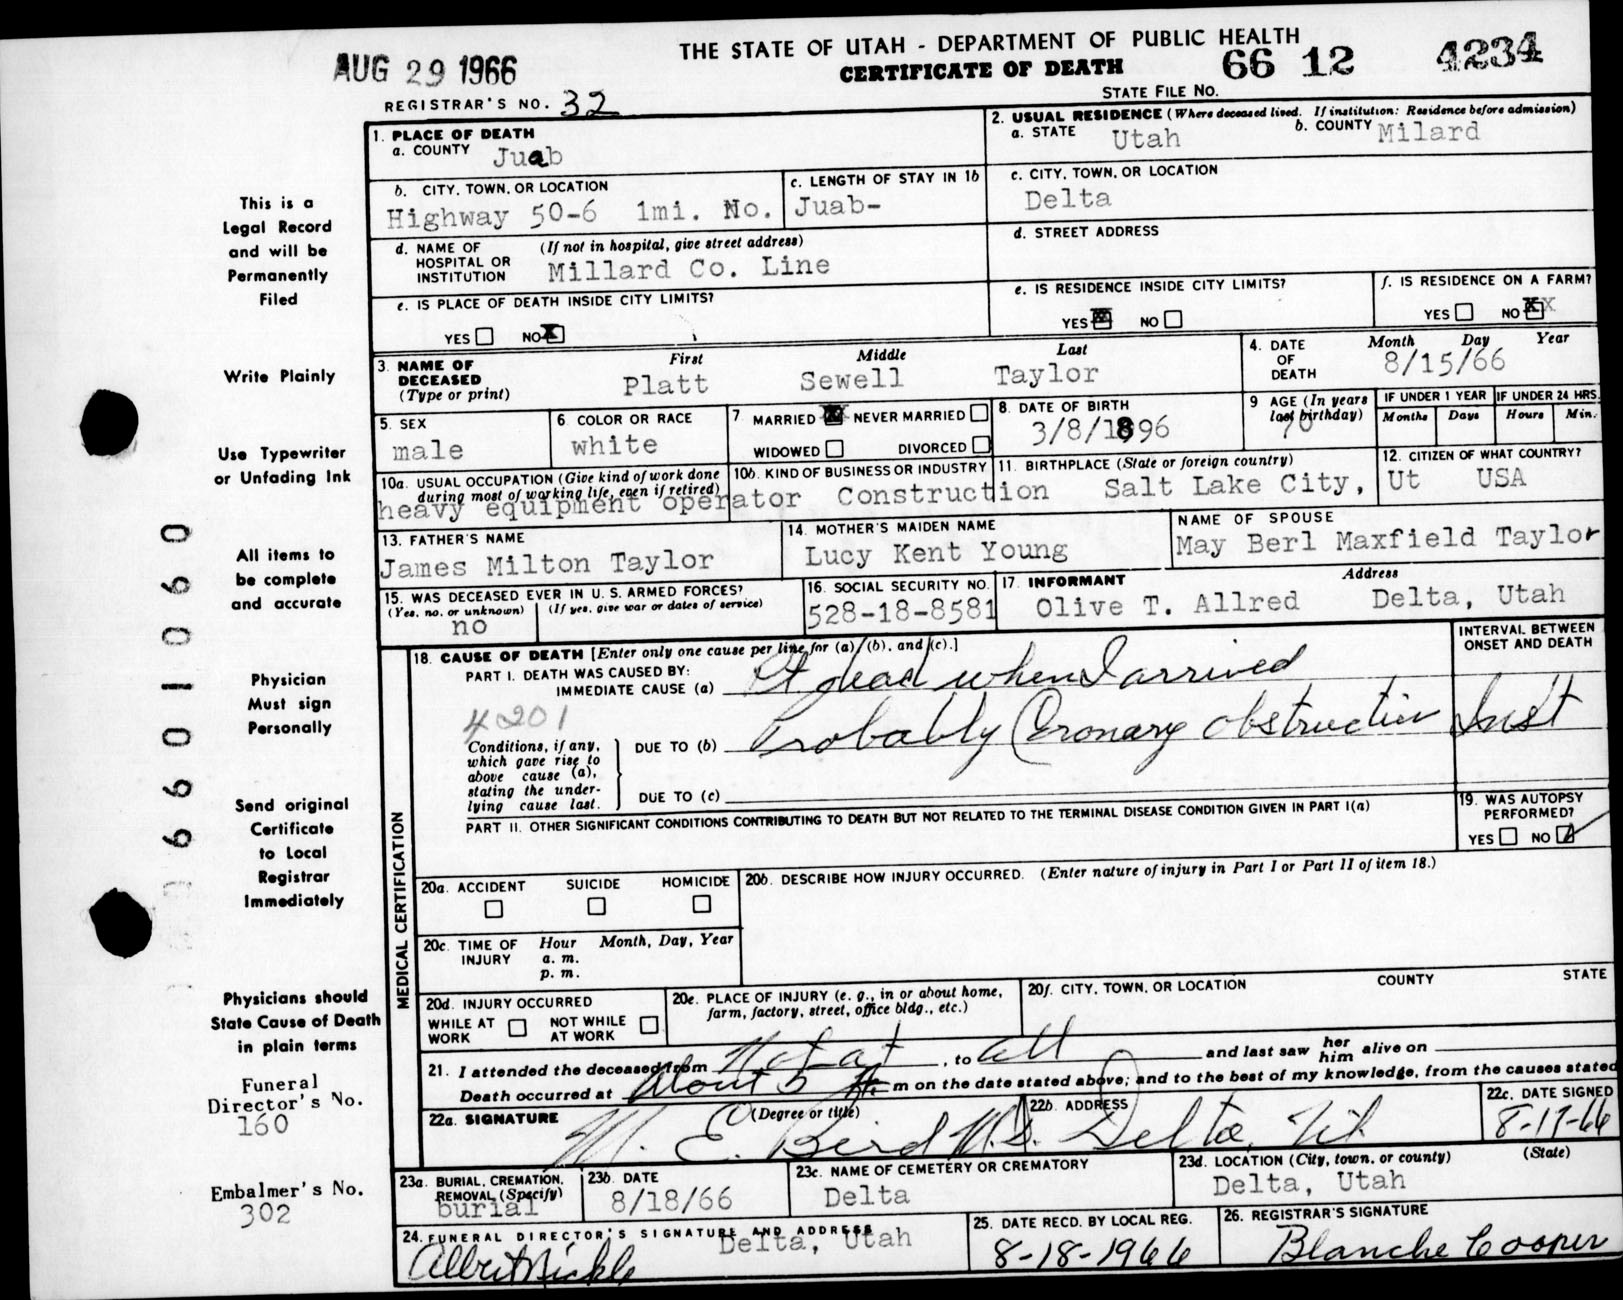 THE STATE OF UTAH - DEPARTMENT OF PUBLIC HEALTH
AUG 29 1966
CERTIFICATE OF DEATH
66 12 4234
STATE FILE No.
REGISTRAR'S NO. 32
1. PLACE OF DEATH
a. COUNTY Juab
2. USUAL RESIDENCE (Where deceased lived. If institution: Residence before admission)
a. STATE Utah b. COUNTY Milard
b. CITY, TOWN, OR LOCATION
Highway 50-6 1mi. No.
c. LENGTH OF STAY IN 1b
Juab-
c. CITY, TOWN, OR LOCATION
Delta
d. NAME OF HOSPITAL OR INSTITUTION (If not in hospital, give street address)
Millard Co. Line
d. STREET ADDRESS
e. IS PLACE OF DEATH INSIDE CITY LIMITS?
YES NO X
e. IS RESIDENCE INSIDE CITY LIMITS?
YES X NO
f. IS RESIDENCE ON A FARM?
YES NO XX
3. NAME OF DECEASED (Type or print)
First Middle Last
Platt Sewell Taylor
4. DATE OF DEATH
Month Day Year
8/15/66
5. SEX
male
6. COLOR OR RACE
white
7. MARRIED X NEVER MARRIED
WIDOWED DIVORCED
8. DATE OF BIRTH
3/8/1896
9 AGE (In years last birthday)
70
IF UNDER 1 YEAR
Months Days
IF UNDER 24 HRS.
Hours Min.
10a. USUAL OCCUPATION (Give kind of work done during most of working life, even if retired)
heavy equipment operator
10b. KIND OF BUSINESS OR INDUSTRY
Construction
11. BIRTHPLACE (State or foreign country)
Salt Lake City, Ut
12. CITIZEN OF WHAT COUNTRY?
USA
13. FATHER'S NAME
James Milton Taylor
14. MOTHER'S MAIDEN NAME
Lucy Kent Young
NAME OF SPOUSE
May Berl Maxfield Taylor
15. WAS DECEASED EVER IN U. S. ARMED FORCES?
(Yes, no, or unknown) (If yes, give war or dates of service)
no
16. SOCIAL SECURITY NO.
528-18-8581
17. INFORMANT Address
Olive T. Allred Delta, Utah
MEDICAL CERTIFICATION
18. CAUSE OF DEATH [Enter only one cause per line for (a), (b), and (c).]
INTERVAL BETWEEN ONSET AND DEATH
PART I. DEATH WAS CAUSED BY:
IMMEDIATE CAUSE (a) Pt dead when I arrived
4201
Conditions, if any, which gave rise to above cause (a), stating the underlying cause last.
DUE TO (b) Probably Coronary obstruction Inst
DUE TO (c)
PART II. OTHER SIGNIFICANT CONDITIONS CONTRIBUTING TO DEATH BUT NOT RELATED TO THE TERMINAL DISEASE CONDITION GIVEN IN PART I(a)
19. WAS AUTOPSY PERFORMED?
YES NO ✓
20a. ACCIDENT SUICIDE HOMICIDE
20b. DESCRIBE HOW INJURY OCCURRED. (Enter nature of injury in Part I or Part II of item 18.)
20c. TIME OF INJURY Hour Month, Day, Year
a. m.
p. m.
20d. INJURY OCCURRED
WHILE AT WORK NOT WHILE AT WORK
20e. PLACE OF INJURY (e. g., in or about home, farm, factory, street, office bldg., etc.)
20f. CITY, TOWN, OR LOCATION COUNTY STATE
21. I attended the deceased from Not at, to all and last saw her him alive on
Death occurred at about 5 m on the date stated above; and to the best of my knowledge, from the causes stated
22a. SIGNATURE (Degree or title)
M. E. Bird M.D.
22b. ADDRESS
Delta, Ut.
22c. DATE SIGNED
8-17-66
23a. BURIAL, CREMATION, REMOVAL (Specify)
burial
23b. DATE
8/18/66
23c. NAME OF CEMETERY OR CREMATORY
Delta
23d. LOCATION (City, town, or county) (State)
Delta, Utah
24. FUNERAL DIRECTOR'S SIGNATURE AND ADDRESS
Delta, Utah
Albert Nickle
25. DATE RECD. BY LOCAL REG.
8-18-1966
26. REGISTRAR'S SIGNATURE
Blanche Cooper
This is a
Legal Record
and will be
Permanently
Filed
Write Plainly
Use Typewriter
or Unfading Ink
All items to
be complete
and accurate
Physician
Must sign
Personally
Send original
Certificate
to Local
Registrar
Immediately
Physicians should
State Cause of Death
in plain terms
Funeral
Director's No.
160
Embalmer's No.
302
6601060